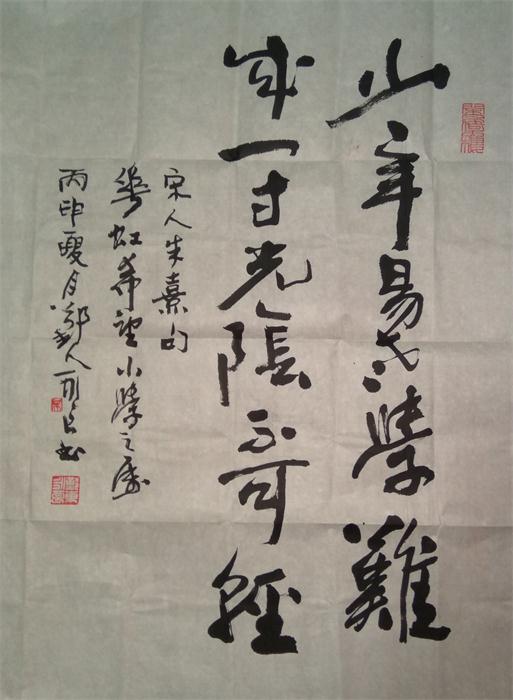 少年易老學難
成一寸光陰不可輕
宋人朱熹句
華虹希望小學之屬
丙申夏月鄭人